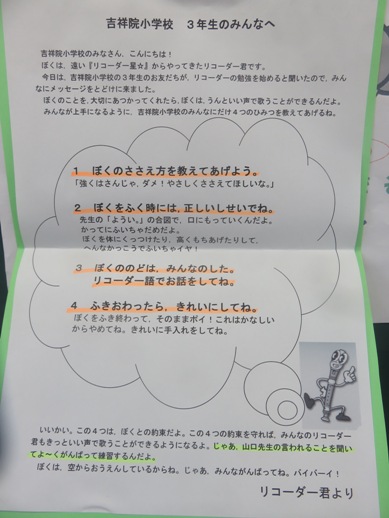 吉祥院小学校　３年生のみんなへ
吉祥院小学校のみなさん、こんにちは！
ぼくは、遠い『リコーダー星☆』からやってきたリコーダー君です。
今日は、吉祥院小学校の３年生のお友だちが、リコーダーの勉強を始めると聞いたので、みん
なにメッセージをとどけに来ました。
ぼくのことを、大切にあつかってくれたら、ぼくは、うんといい声で歌うことができるんだよ。
みんなが上手になるように、吉祥院小学校のみんなにだけ４つのひみつを教えてあげるね。
１　ぼくのささえ方を教えてあげよう。
「強くはさんじゃ、ダメ！やさしくささえてほしいな。」
２　ぼくをふく時には、正しいしせいでね。
先生の「ようい。」の合図で、口にもっていくんだよ。
かってにふいちゃだめだよ。
ぼくを体にくっつけたり、高くもちあげたりして、
へんなかっこうでふいちゃイヤ！
３　ぼくののどは、みんなのした。
リコーダー語でお話をしてね。
４　ふきおわったら、きれいにしてね。
ぼくをふき終わって、そのままポイ！これはかなしい
からやめてね。きれいに手入れをしてね。
いいかい。この４つは、ぼくとの約束だよ。この４つの約束を守れば、みんなのリコーダー
君もきっといい声で歌うことができるようになるよ。じゃあ、山口先生の言われることを聞い
てよ～くがんばって練習するんだよ。
ぼくは、空からおうえんしているからね。じゃあ、みんながんばってね。バイバーイ！
リコーダー君より